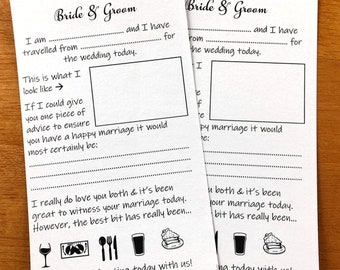 Bride & Groom
I am .................... and I have
travelled from .................... for
.................... the wedding today.
This is what I
look like →
If I could give
you one piece of
advice to ensure
you have a happy marriage it would
most certainly be:
I really do love you both & it's been
great to witness your marriage today.
However, the best bit has really been...
today with us!
Bride & Groom
and I have
for
the wedding today.
marriage it would
you both & it's been
your marriage today.
bit has really been...